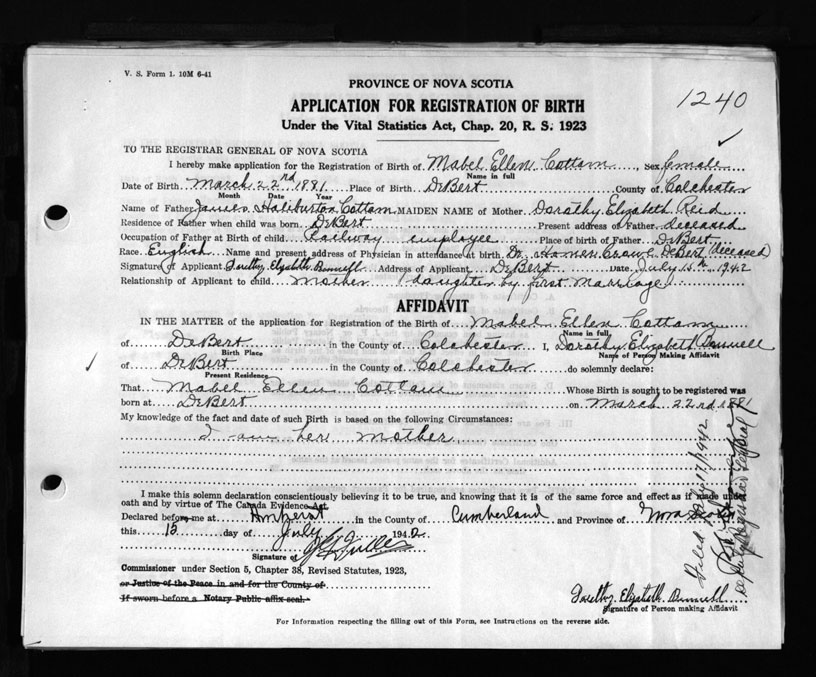 V. S. Form 1. 10M 6-41
PROVINCE OF NOVA SCOTIA
1240
APPLICATION FOR REGISTRATION OF BIRTH
Under the Vital Statistics Act, Chap. 20, R. S. 1923
TO THE REGISTRAR GENERAL OF NOVA SCOTIA
I hereby make application for the Registration of Birth of Mabel Ellen Cottam, Sex female
Name in full
Date of Birth March 22nd 1881 Place of Birth DeBert County of Colchester
Month Date Year
Name of Father James Haliburton Cottam MAIDEN NAME of Mother Dorothy Elizabeth Reid
Residence of Father when child was born DeBert Present address of Father deceased
Occupation of Father at Birth of child Railway employee Place of birth of Father DeBert
Race English Name and present address of Physician in attendance at birth Dr. DeBert (deceased)
Signature of Applicant Dorothy Elizabeth Address of Applicant DeBert Date July 15th 1942
Relationship of Applicant to child mother daughter by first marriage
AFFIDAVIT
IN THE MATTER of the application for Registration of the Birth of Mabel Ellen Cottam
Name in full
of DeBert in the County of Colchester I, Dorothy Elizabeth
Birth Place Name of Person Making Affidavit
of DeBert in the County of Colchester do solemnly declare:
Present Residence
That Mabel Ellen Cottam Whose Birth is sought to be registered was
born at DeBert on March 22rd 1881
My knowledge of the fact and date of such Birth is based on the following Circumstances:
I am her mother
I make this solemn declaration conscientiously believing it to be true, and knowing that it is of the same force and effect as if made under
oath and by virtue of The Canada Evidence Act.
Declared before me at Amherst in the County of Cumberland and Province of Nova Scotia
this 15 day of July 1942
Signature of
Commissioner under Section 5, Chapter 38, Revised Statutes, 1923,
or Justice of the Peace in and for the County of
If sworn before a Notary Public affix seal.
Dorothy Elizabeth
Signature of Person making Affidavit
For Information respecting the filling out of this Form, see Instructions on the reverse side.
Filed July 17/1942
Deputy Registrar General